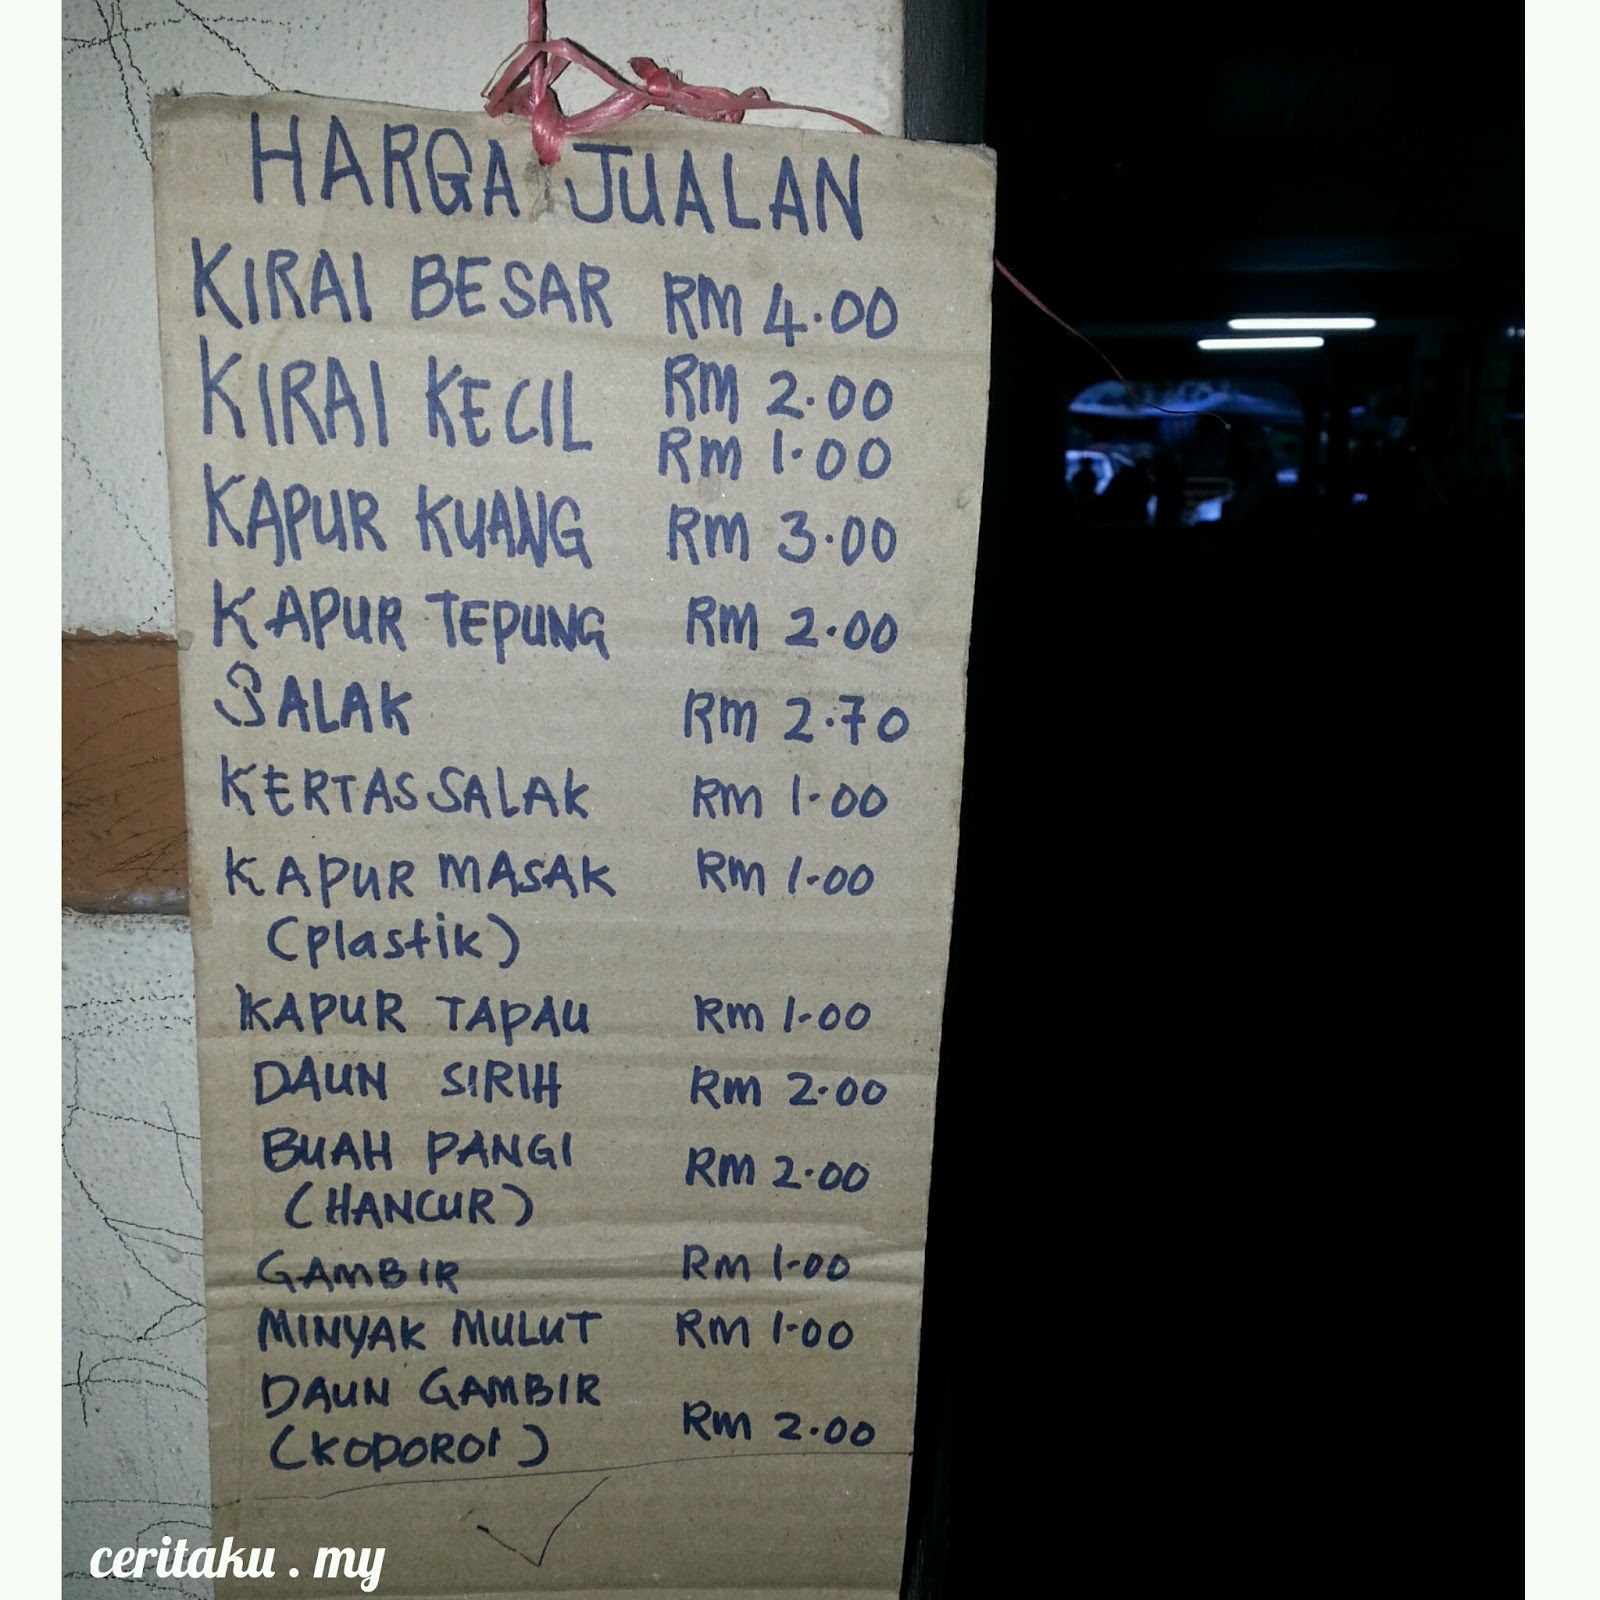 HARGA JUALAN
KIRAI BESAR RM 4.00
KIRAI KECIL RM 2.00
RM 1.00
KAPUR KUANG RM 3.00
KAPUR TEPUNG RM 2.00
SALAK RM 2.70
KERTAS SALAK RM 1.00
KAPUR MASAK RM 1.00
(plastik)
KAPUR TAPAU RM 1.00
DAUN SIRIH RM 2.00
BUAH PANGI RM 2.00
(HANCUR)
GAMBIR RM 1.00
MINYAK MULUT RM 1.00
DAUN GAMBIR RM 2.00
(KODOROI)
ceritaku . my